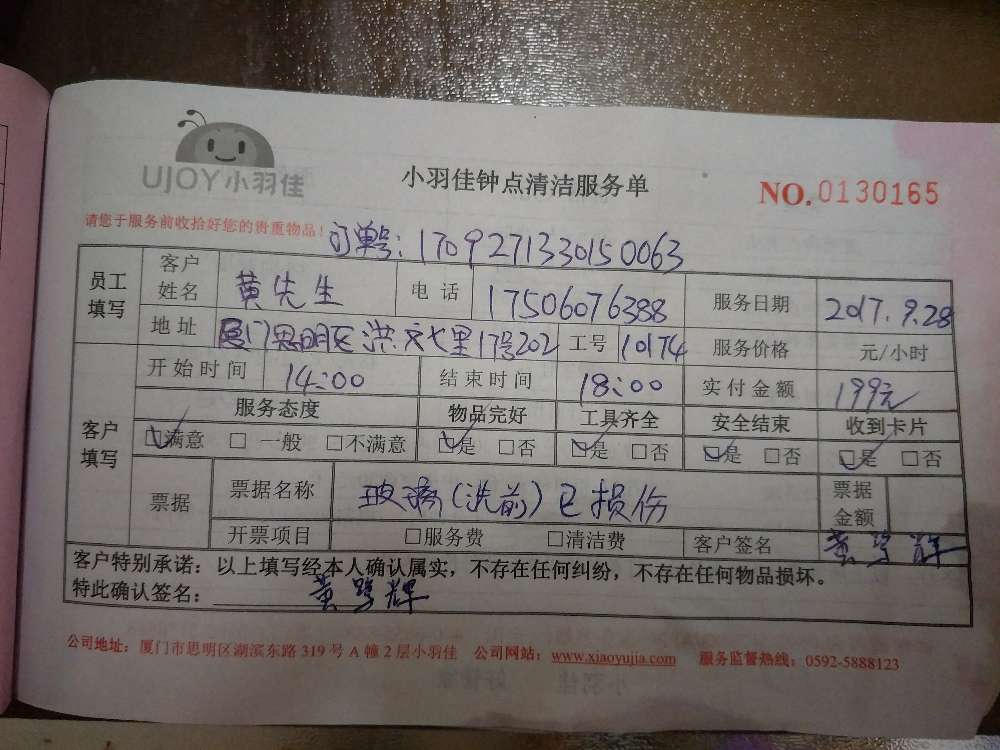 UJOY小羽佳
小羽佳钟点清洁服务单
NO.0130165
请您于服务前收拾好您的贵重物品!
订单号:1709271330150063
员工填写 客户姓名 黄先生 电话 17506076388 服务日期 2017.9.28
地址 厦门思明区洪文七里17号202 工号 10174 服务价格 元/小时
开始时间 14:00 结束时间 18:00 实付金额 199元
客户填写 服务态度 物品完好 工具齐全 安全结束 收到卡片
☑满意 □一般 □不满意 ☑是 □否 ☑是 □否 ☑是 □否 ☑是 □否
票据 票据名称 玻璃(洗前)已损伤 票据金额
开票项目 □服务费 □清洁费 客户签名 黄 辉
客户特别承诺:以上填写经本人确认属实,不存在任何纠纷,不存在任何物品损坏。
特此确认签名: 黄 辉
公司地址:厦门市思明区湖滨东路 319 号 A 幢 2 层小羽佳 公司网站:www.xiaoyujia.com 服务监督热线:0592-5888123